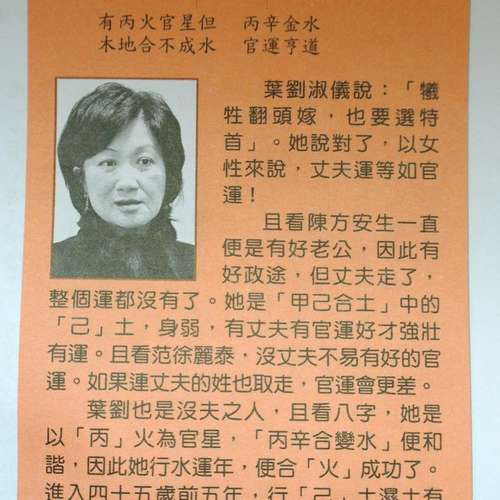 有丙火官星但　丙辛金水
木地合不成水　官運亨道
葉劉淑儀說：「犧
牲翻頭嫁，也要選特
首」。她說對了，以女
性來說，丈夫運等如官
運！
且看陳方安生一直
便是有好老公，因此有
好政途，但丈夫走了，
整個運都沒有了。她是「甲己合土」中的
「己」土，身弱，有丈夫有官運好才強壯
有運。且看范徐麗泰，沒丈夫不易有好的官
運。如果連丈夫的姓也取走，官運會更差。
葉劉也是沒夫之人，且看八字，她是
以「丙」火為官星，「丙辛合變水」便和
諧，因此她行水運年，便合「火」成功了。
進入四十五歲前五年，行「己」土濕土有